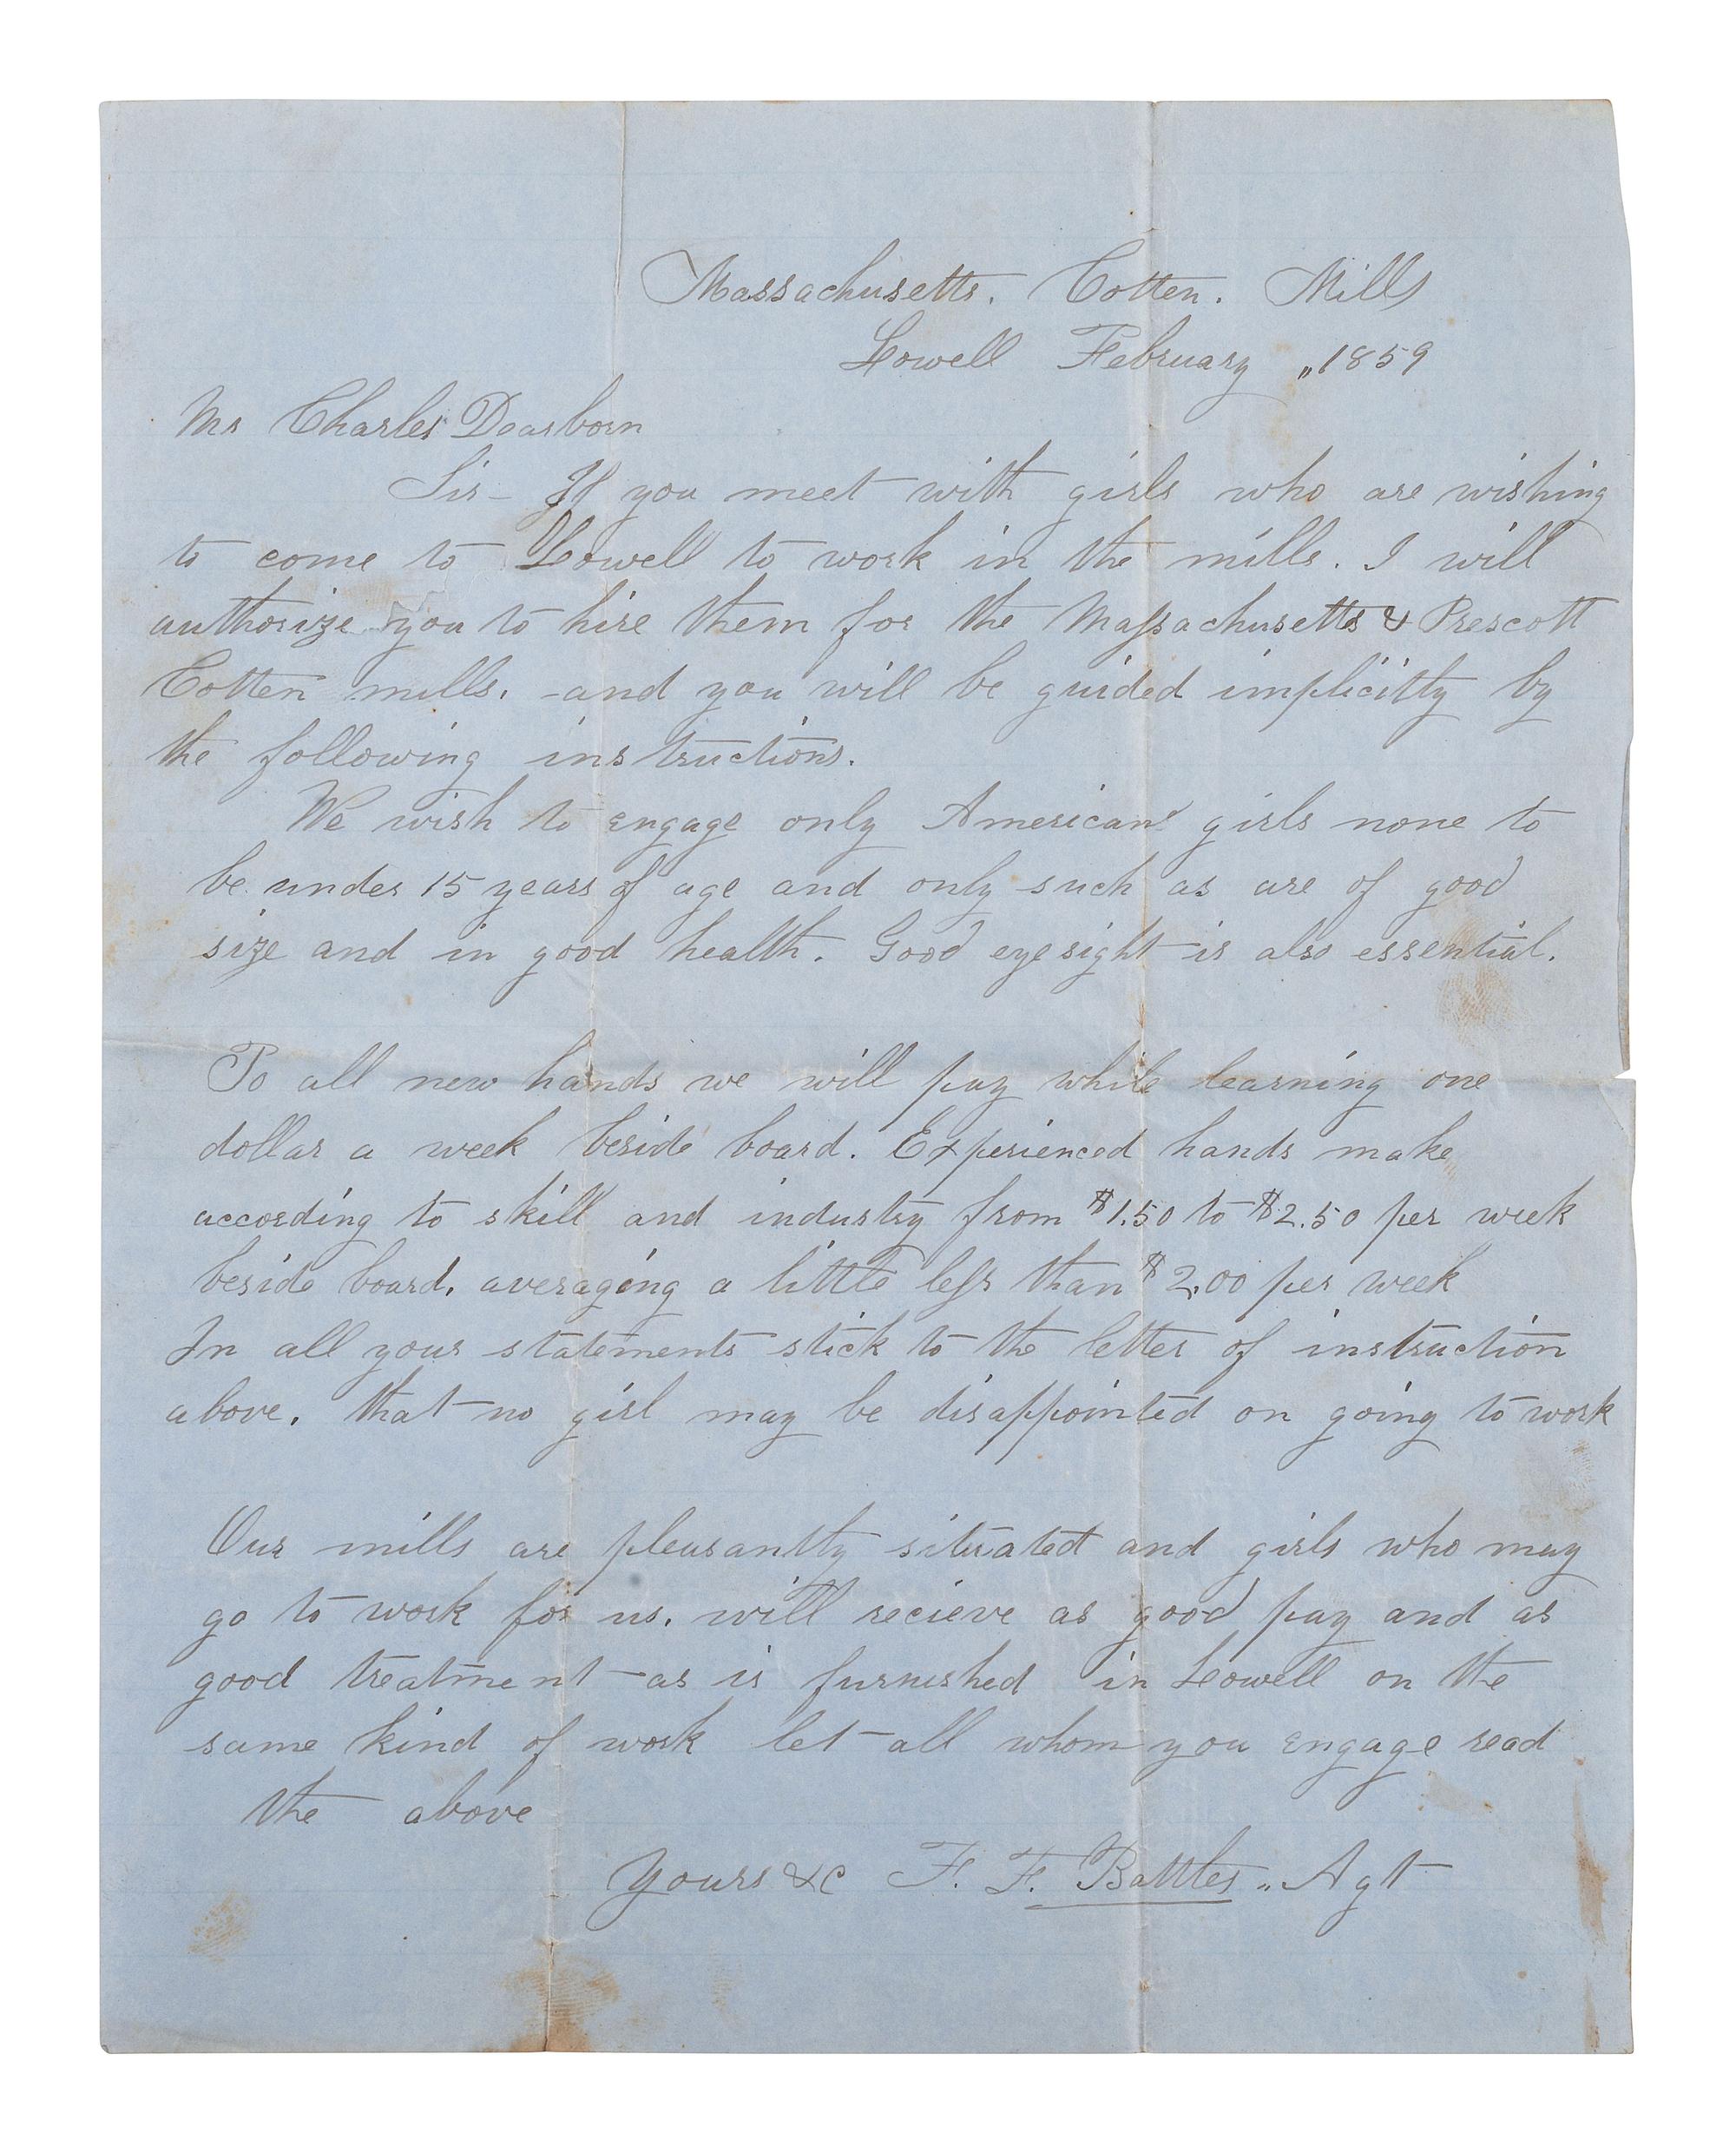 Massachusetts. Cotten. Mills
Lowell February „1859
Mr Charles Dearborn
Sir- If you meet with girls who are wishing
to come to Lowell to work in the mills. I will
authorize you to hire them for the Massachusetts & Prescott
Cotten mills. -and you will be guided implicitly by
the following instructions.
We wish to engage only American girls none to
be under 15 years of age and only such as are of good
size and in good health. Good eyesight is also essential.
To all new hands we will pay while learning one
dollar a week beside board. Experienced hands make
according to skill and industry from $1.50 to $2.50 per week
beside board. averaging a little less than $2.00 per week
In all your statements stick to the letter of instruction
above. that no girl may be disappointed on going to work
Our mills are pleasantly situated and girls who may
go to work for us. will recieve as good pay and as
good treatment as is furnished in Lowell on the
same kind of work let all whom you engage read
the above
Yours &c F. F. Battles „ Agt